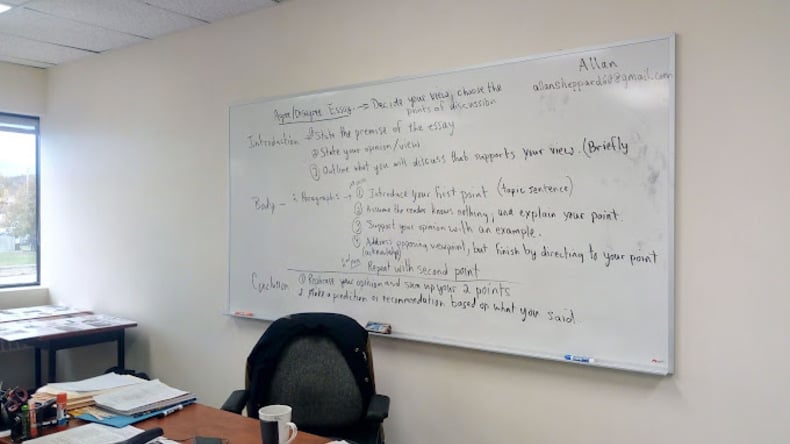 Allan
allansheppard68@gmail.com
Agree/Disagree Essay → Decide your view, choose the
points of discussion
Introduction ① State the premise of the essay
② State your opinion/view
③ Outline what you will discuss that supports your view. (Briefly
Body - 2 Paragraphs → ① Introduce your first point (topic sentence)
② Assume the reader knows nothing, and explain your point.
③ Support your opinion with an example.
④ Address opposing viewpoint, but finish by directing to your point
(acknowledge)
Repeat with second point
Conclusion ① Rephrase your opinion and sum up your 2 points
& Make a prediction or recommendation based on what you said.